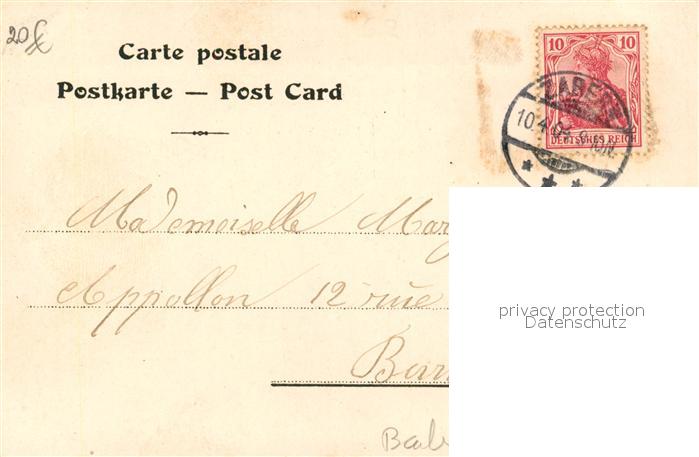 20
Carte postale
Postkarte — Post Card
10 10
DEUTSCHES REICH
ZABE
10.4.0
Mademoiselle
Appollon 12 rue
privacy protection
Datenschutz